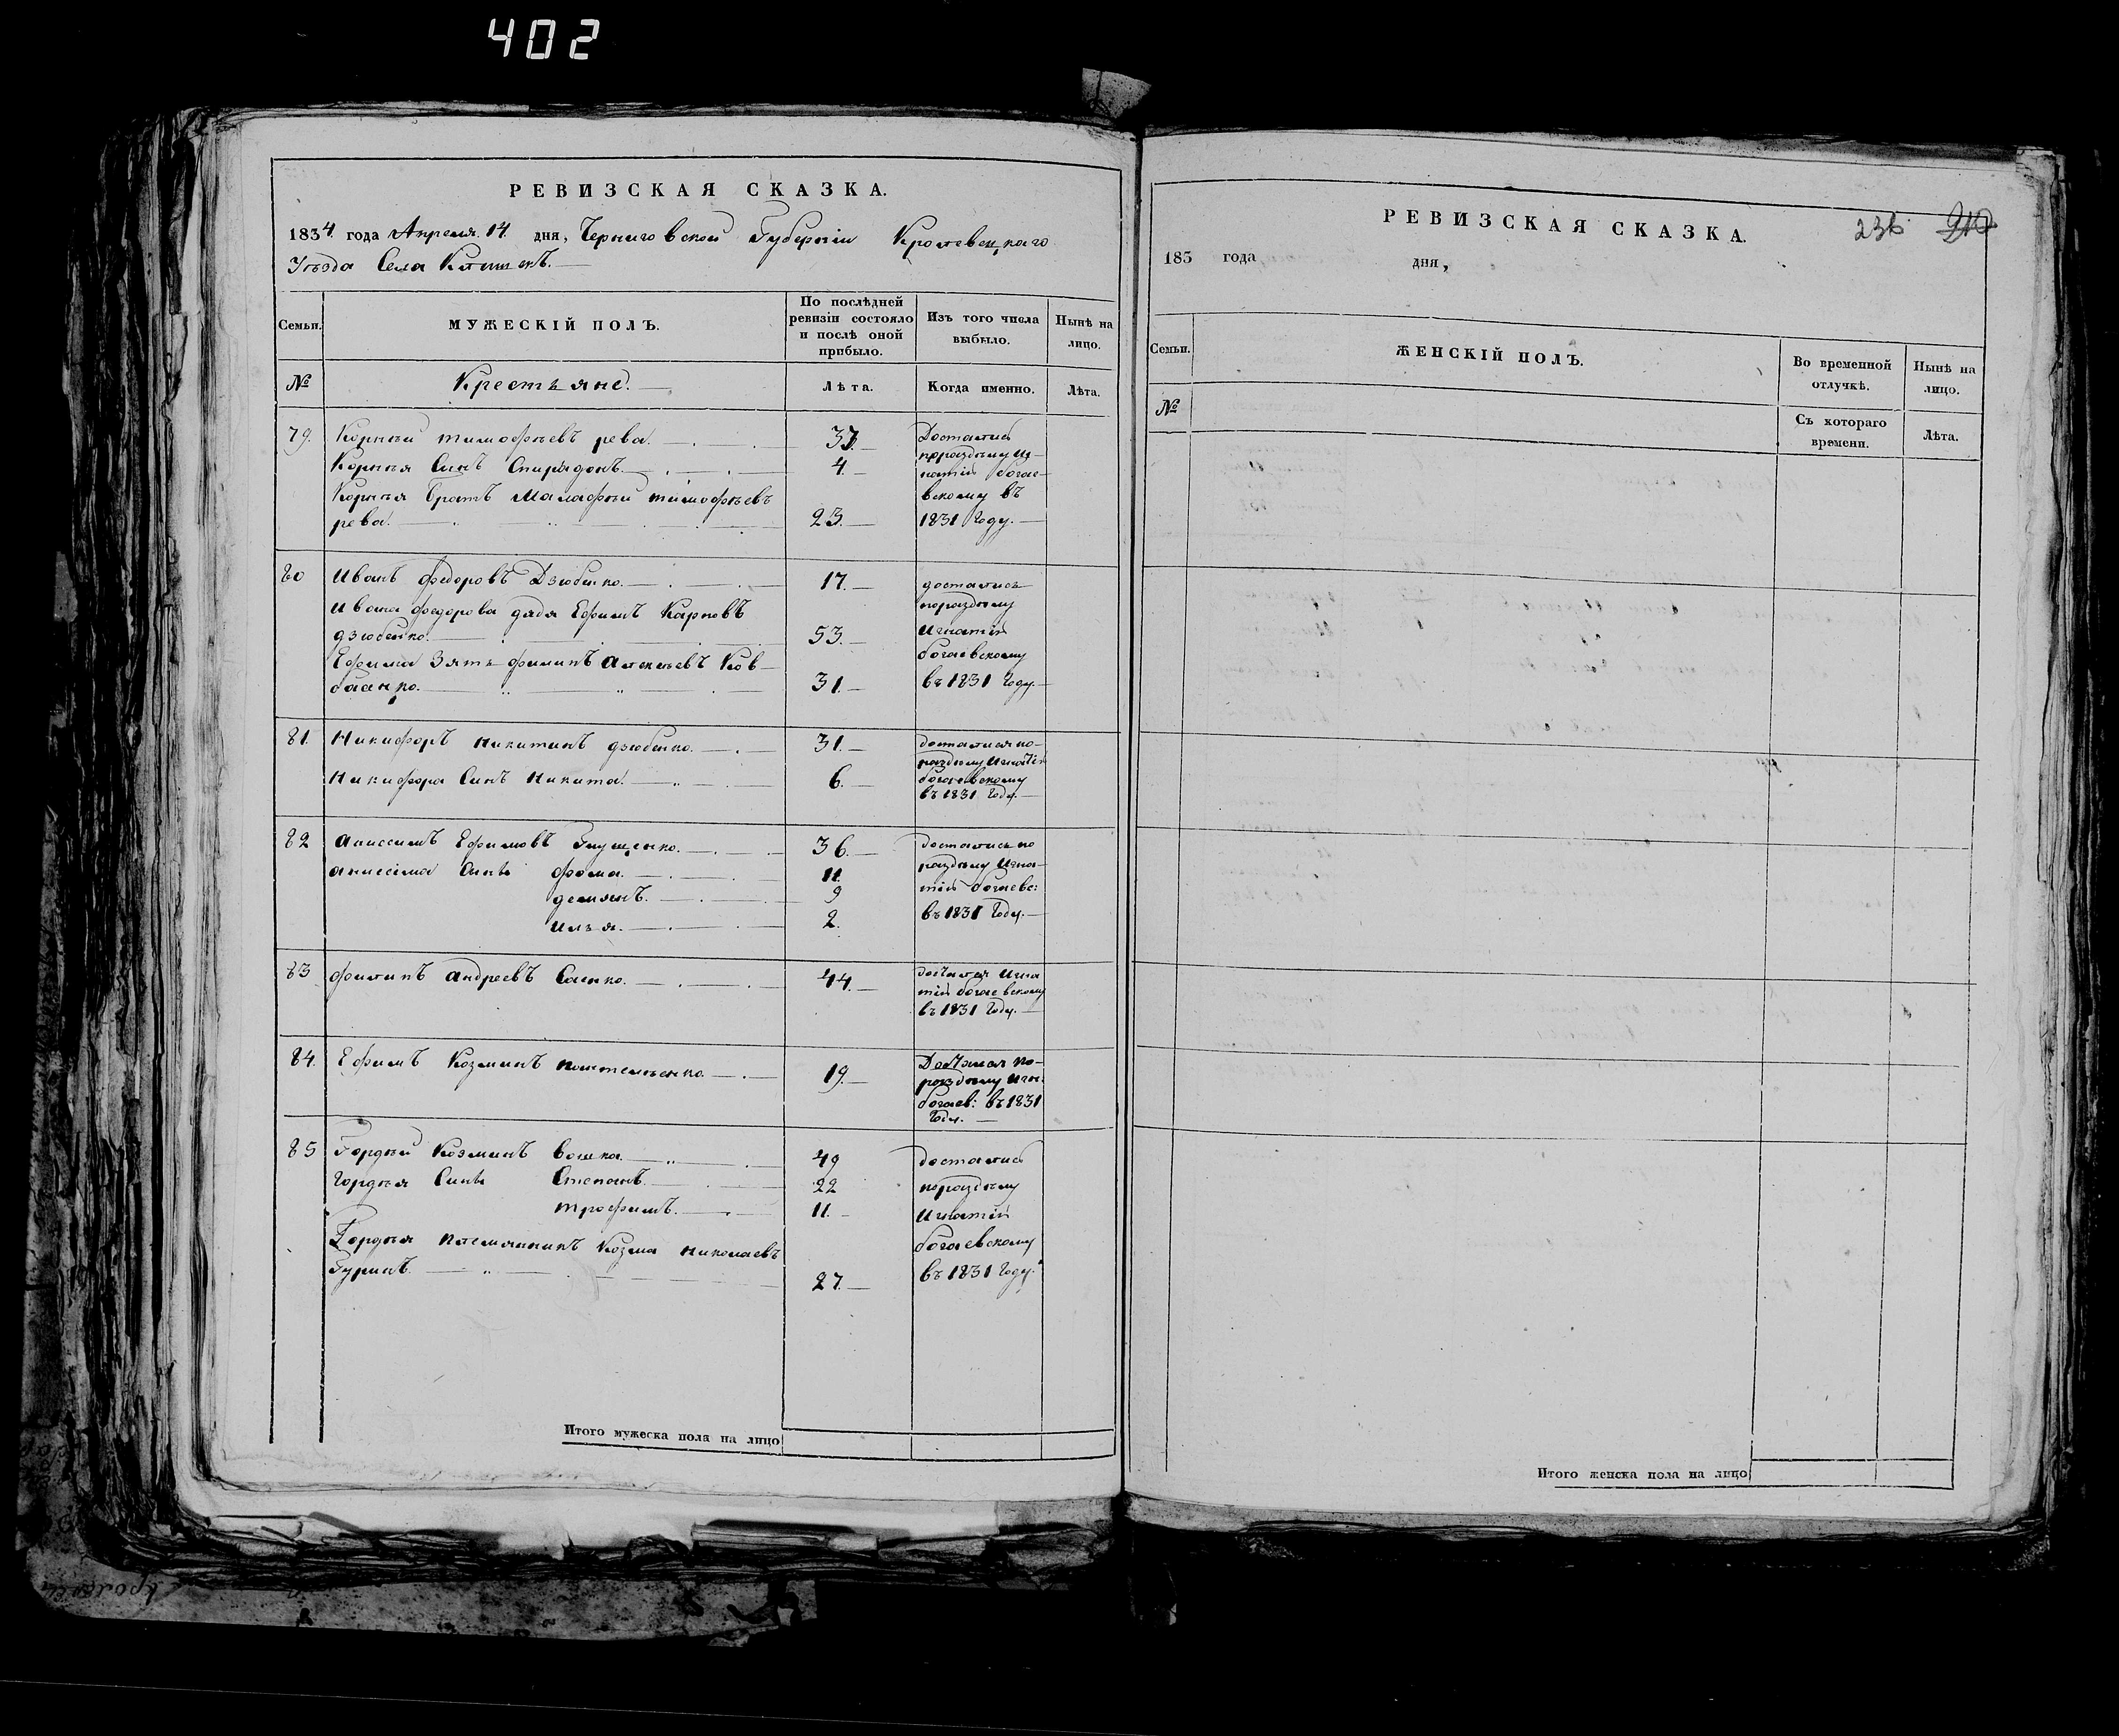 402
РЕВИЗСКАЯ СКАЗКА.
1834 года Апреля 14. дня, Черниговской Губерніи Кролевецкаго
Уѣзда Села
Семьи.
МУЖЕСКІЙ ПОЛЪ.
По послѣдней ревизіи состояло и послѣ оной прибыло.
Изъ того числа выбыло.
Нынѣ на лицо.
№
Крестьяне.
Лѣта.
Когда именно.
Лѣта.
79. Корней тимофѣевъ рева. 33. Достались
Корнея Синъ Спиридонъ 4. поразделу Иг-
натій богае-
Корнея братъ Малафѣй тимофѣевъ вскому въ
рева. 23. 1831 Году.
80 Иванъ федоровъ Дзюбенко. 17. достались
Ивана федорова дядя Ефимъ Карповъ поразделу
дзюбенко. 53. Игнатій
Ефима Зять филипъ алексѣевъ Ков- богаевскому
баенко. 31. въ 1831 Году.
81. Никифоръ никитинъ дзюбенко. 31. достался по-
разделу Игнатій
Никифора Синъ никита. 6. богаевскому
въ 1831 Году.
82 аниссимъ Ефимовъ Глущенко. 36. достались по
аниссима Синъ фома. 11. разделу Игна-
демянъ. 9 тій богаевс:
илья. 2. въ 1831 Году.
83 филипъ андреевъ Саенко. 44. достался Игна
тій богаевскому
въ 1831 Году.
84. Ефимъ Козминъ 19. Достался по-
разделу Игн:
богаев: въ 1831
Году.
85 Гордѣй Козминъ вошка. 49 достались
Гордѣя Синъ Степанъ. 22 поразделу
трофимъ. 11. Игнатій
Гордѣя племянникъ Козма николаевъ богаевскому
Гуринъ. 27. въ 1831 Году.
Итого мужеска пола на лицо
РЕВИЗСКАЯ СКАЗКА.
236
183 года дня,
Семьи.
ЖЕНСКІЙ ПОЛЪ.
Во временной отлучкѣ.
Нынѣ на лицо.
№
Съ котораго времени.
Лѣта.
Итого женска пола на лицо